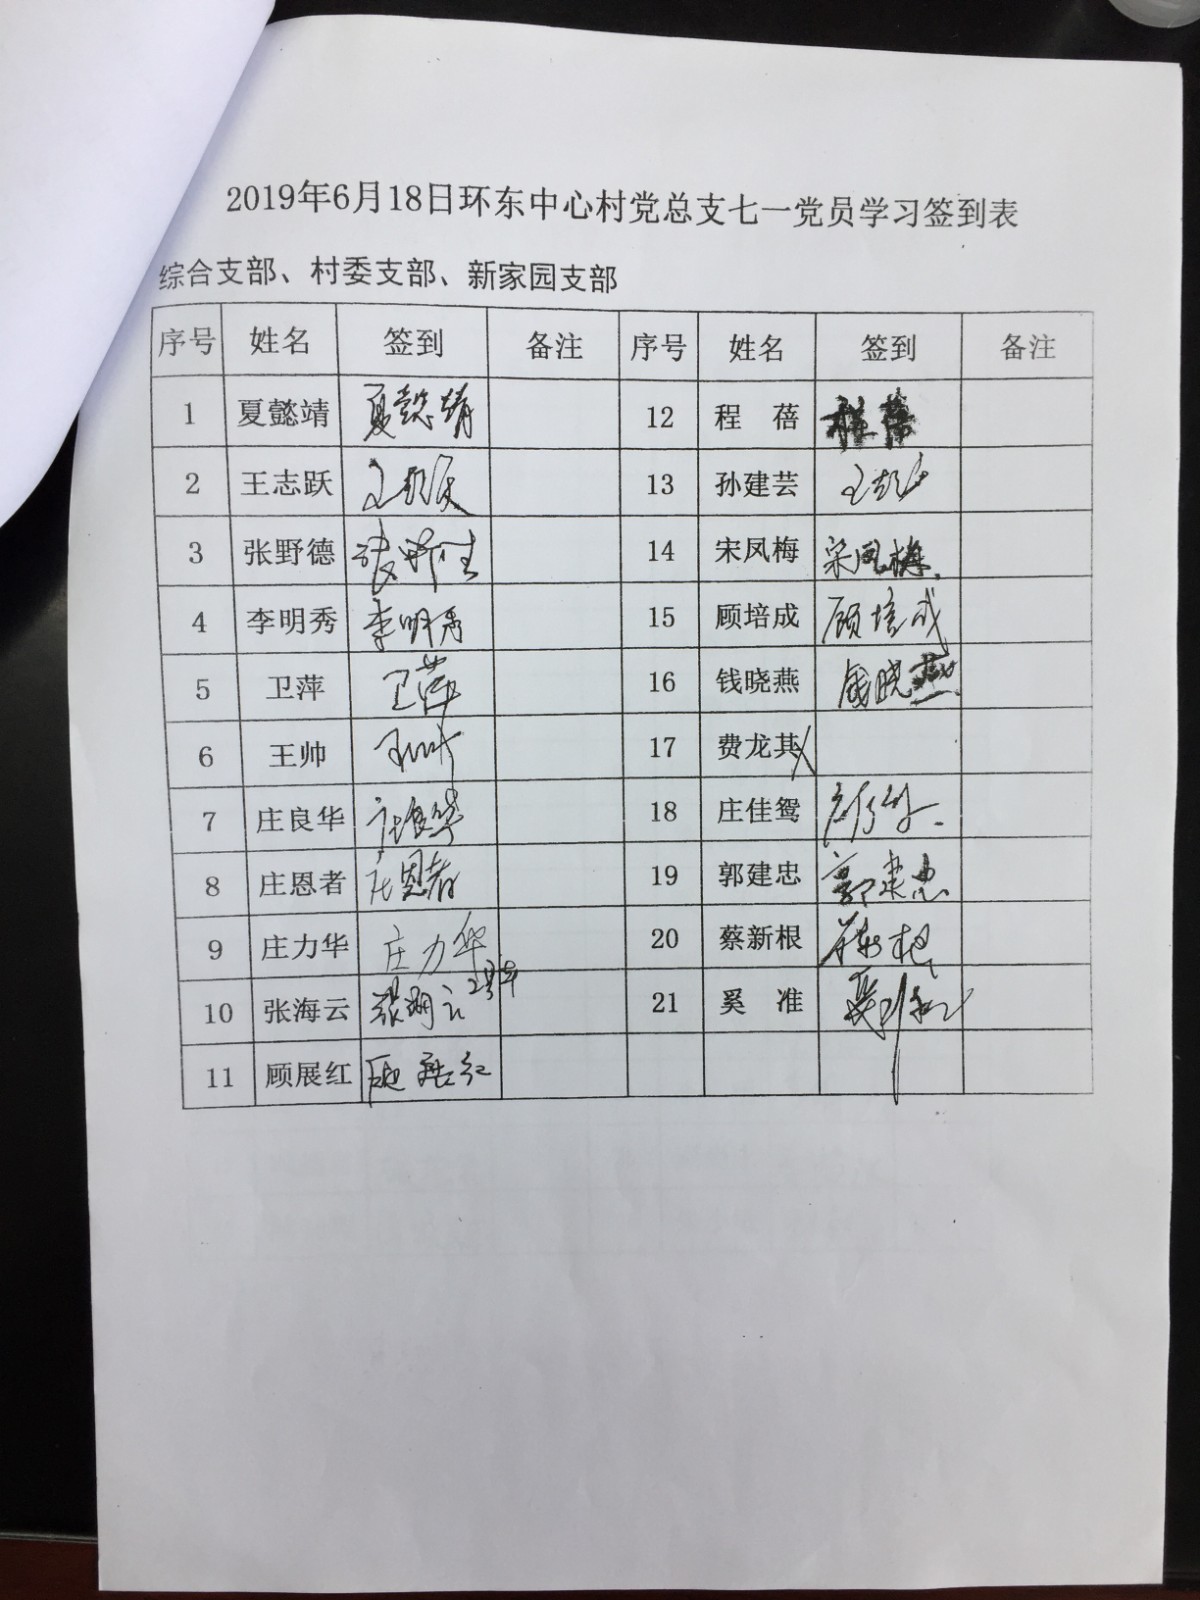 2019年6月18日环东中心村党总支七一党员学习签到表
综合支部、村委支部、新家园支部
序号 姓名 签到 备注 序号 姓名 签到 备注
1 夏懿靖 夏懿靖 12 程 蓓 程蓓
2 王志跃 13 孙建芸
3 张野德 14 宋凤梅 宋凤梅
4 李明秀 李明秀 15 顾培成 顾培成
5 卫萍 卫萍 16 钱晓燕 钱晓燕
6 王帅 王帅 17 费龙其
7 庄良华 庄良华 18 庄佳鸳
8 庄恩者 庄恩者 19 郭建忠 郭建忠
9 庄力华 庄力华 20 蔡新根
10 张海云 21 奚 准
11 顾展红 顾展红